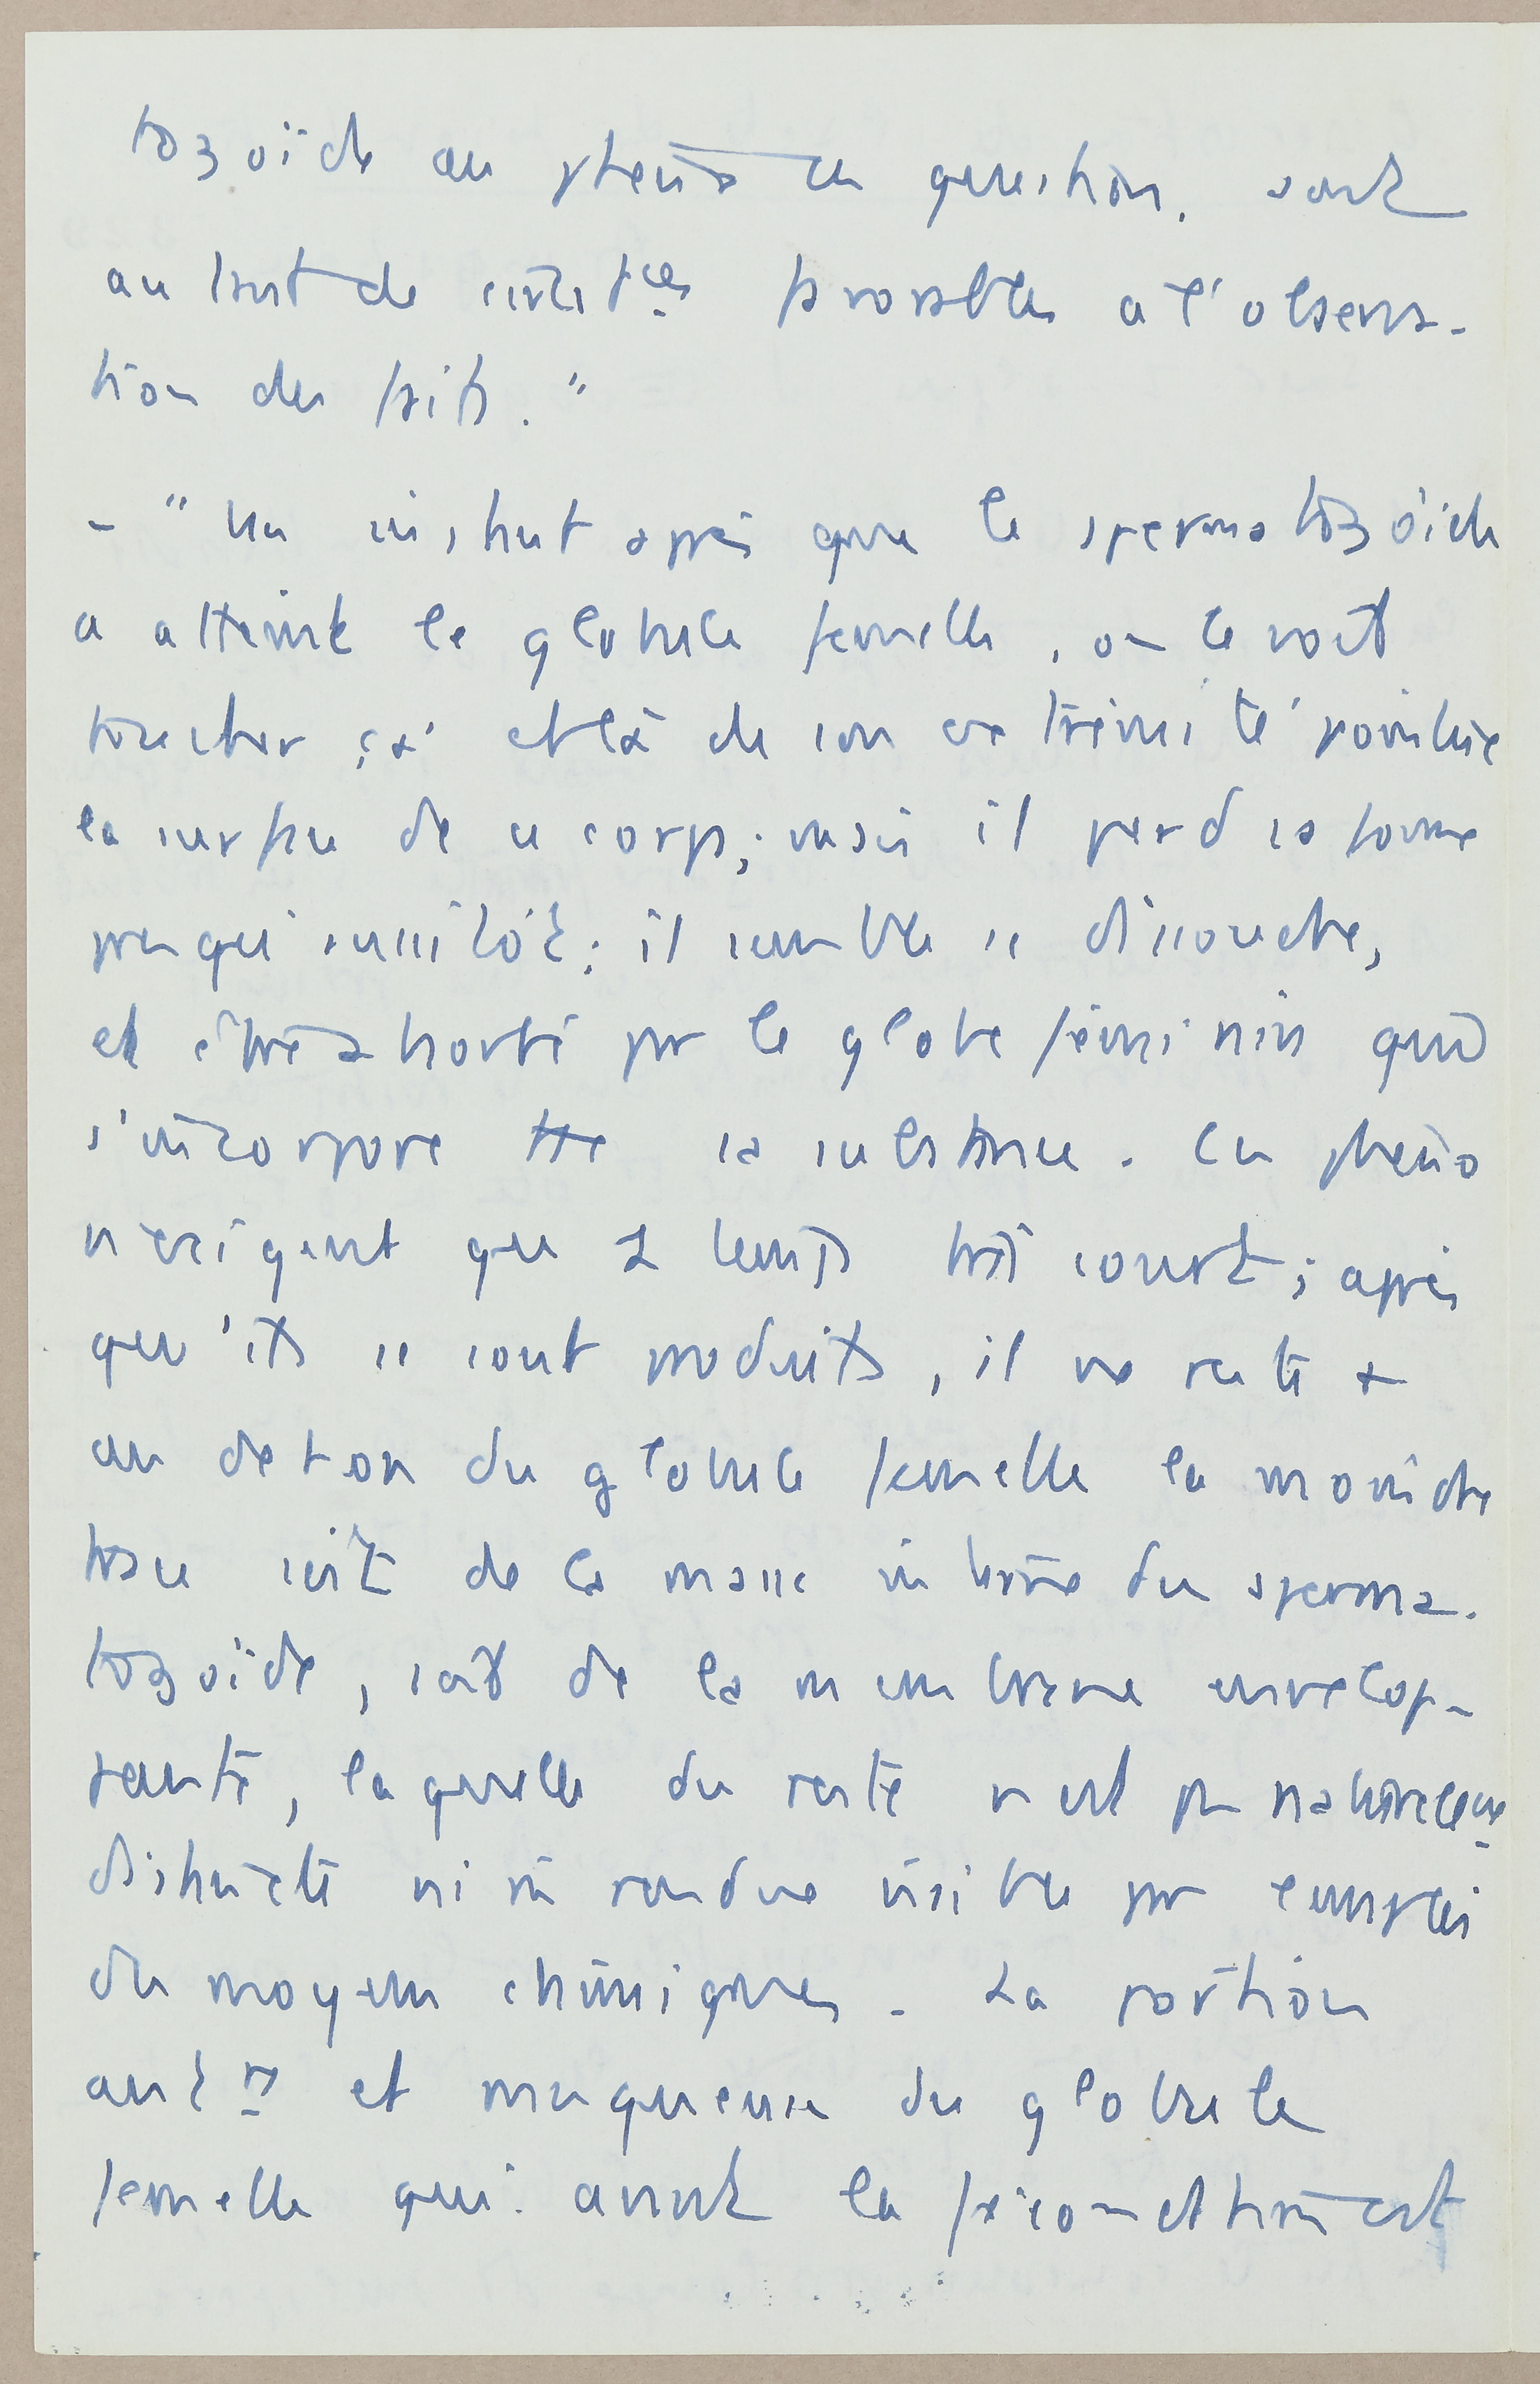 tozoïde au phéno en question. sont
autant de circstces favorables à l'observa-
tion des faits."
- "Un instant après que le spermatozoïde
a atteint le globule femelle, on le voit
toucher çà et là de son extrémité pointue
la surface de ce corps; mais il perd sa forme
presqu'aussitôt; il semble se dissoudre,
et être absorbé par le globe féminin qui
s'incorpore tte sa substance. Ces phéno
n'exigent que 1 temps très court; après
qu'ils se sont produits, il ne reste +
au dehors du globule femelle la moindre
trace soit de la masse interne du sperma-
tozoïde, soit de la membrane envelop-
pante, laquelle du reste n'est pas naturellemt
distincte ni même rendue visible par l'emploi
des moyens chimiques. La portion
antre et muqueuse du globule
femelle qui avant la fécondation était